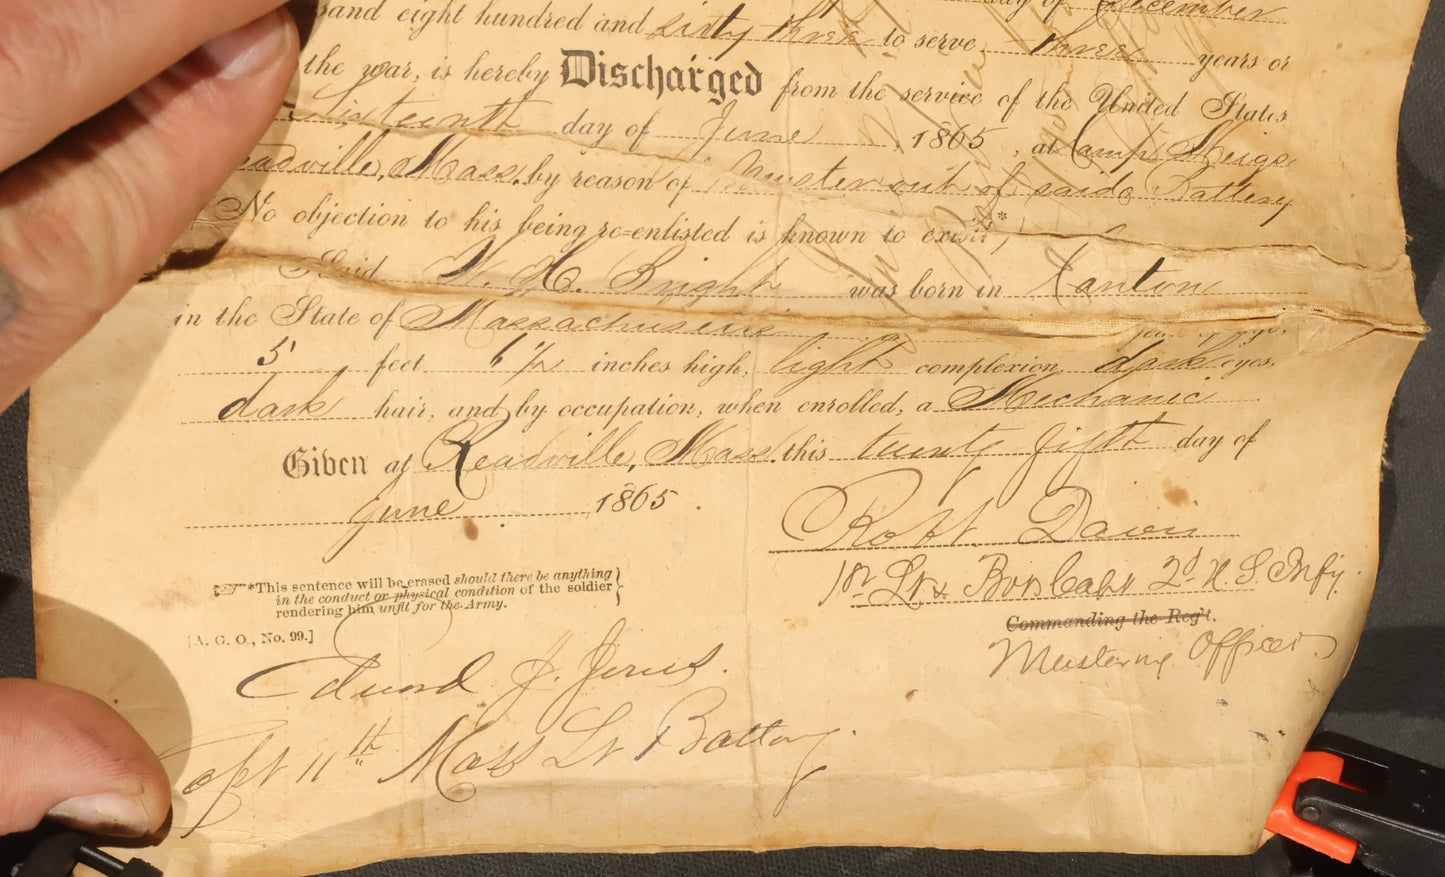 sand eight hundred and sixty three to serve three years or
the war, is hereby Discharged from the service of the United States
Sixteenth day of June, 1865, at Camp Meigs
Readville, Mass. by reason of Muster out of said Battery
No objection to his being re-enlisted is known to exist.*
Said W. H. Bright was born in Canton
in the State of Massachusetts
5' feet 6 1/2 inches high, light complexion, dark eyes,
dark hair, and by occupation, when enrolled, a Mechanic
Given at Readville, Mass. this twenty fifth day of
June 1865.
Robt. Davis
1st Lt & Bvt Capt 2d U. S. Infy.
Commanding the Reg't.
Mustering Officer.
*This sentence will be erased should there be anything
in the conduct or physical condition of the soldier
rendering him unfit for the Army.
[A. G. O., No. 99.]
Edward J. Jones.
Capt 11th Mass Lt Battery.